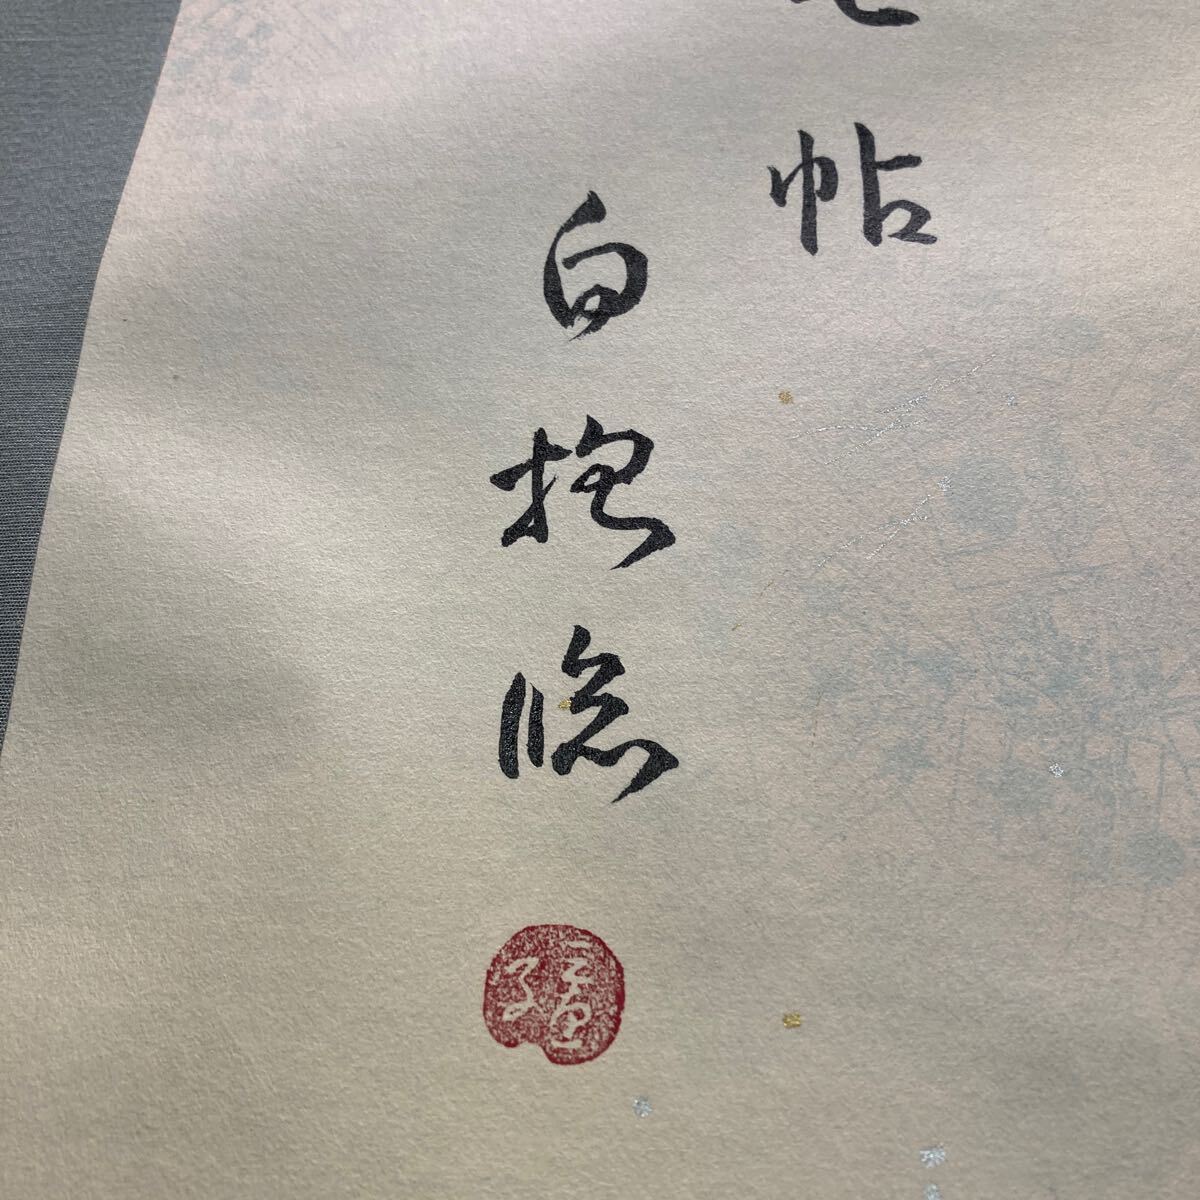 帖
白抱臨